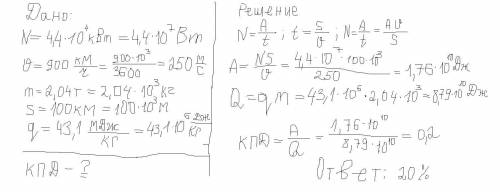 Дано:
N=4,4·10⁴кВт=4,4·10⁷Вт
υ=900 км/ч = 900·10³/3600 = 250 м/с
m=2,04т=2,04·10³кг
S=100км=100·10³м
q=43,1 МДж/кг =43,1·10⁶ Дж/кг
КПД-?
Решение
N=A/t ; t=S/υ ; N=A/t=Aυ/S
A=NS/υ=4,4·10⁷·100·10³/250=1,76·10¹⁰Дж
Q=qm=43,1·10⁶·2,04·10³=8,79·10¹⁰Дж
КПД=A/Q=1,76·10¹⁰/8,79·10¹⁰=0,2
Ответ: 20%